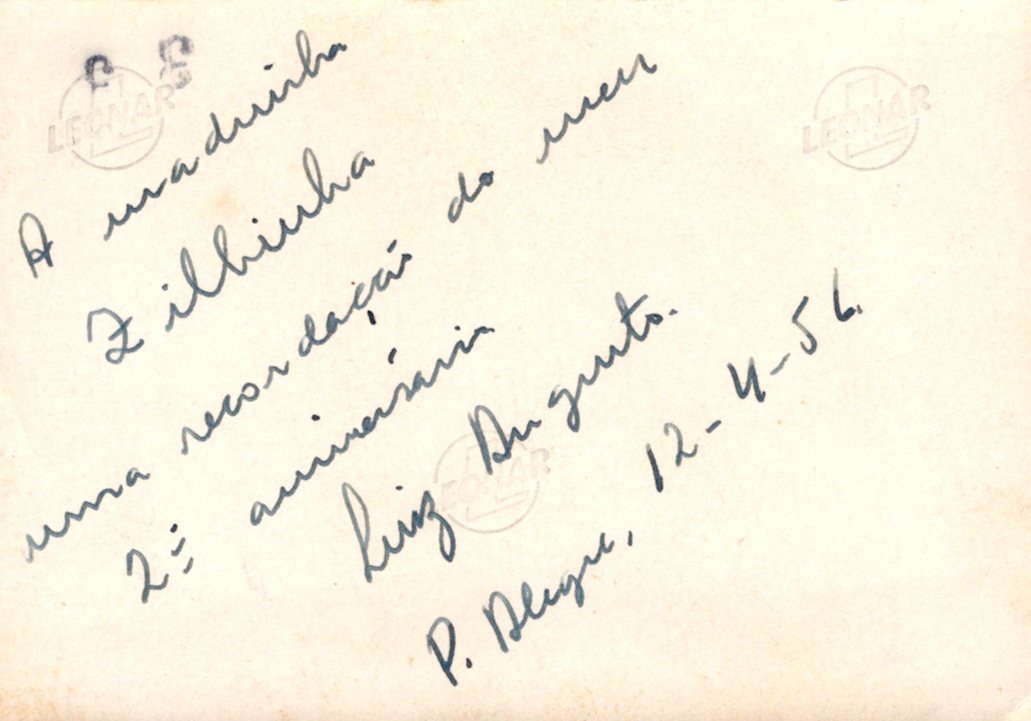 LEONAR
LEONAR
A madrinha
Zilhinha
uma recordação do meu
2º aniversário
Luiz Augusto.
LEONAR
P. Alegre, 12-4-56.